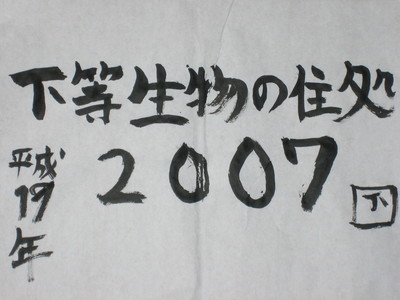 下等生物の住処
2007
平成19年
下